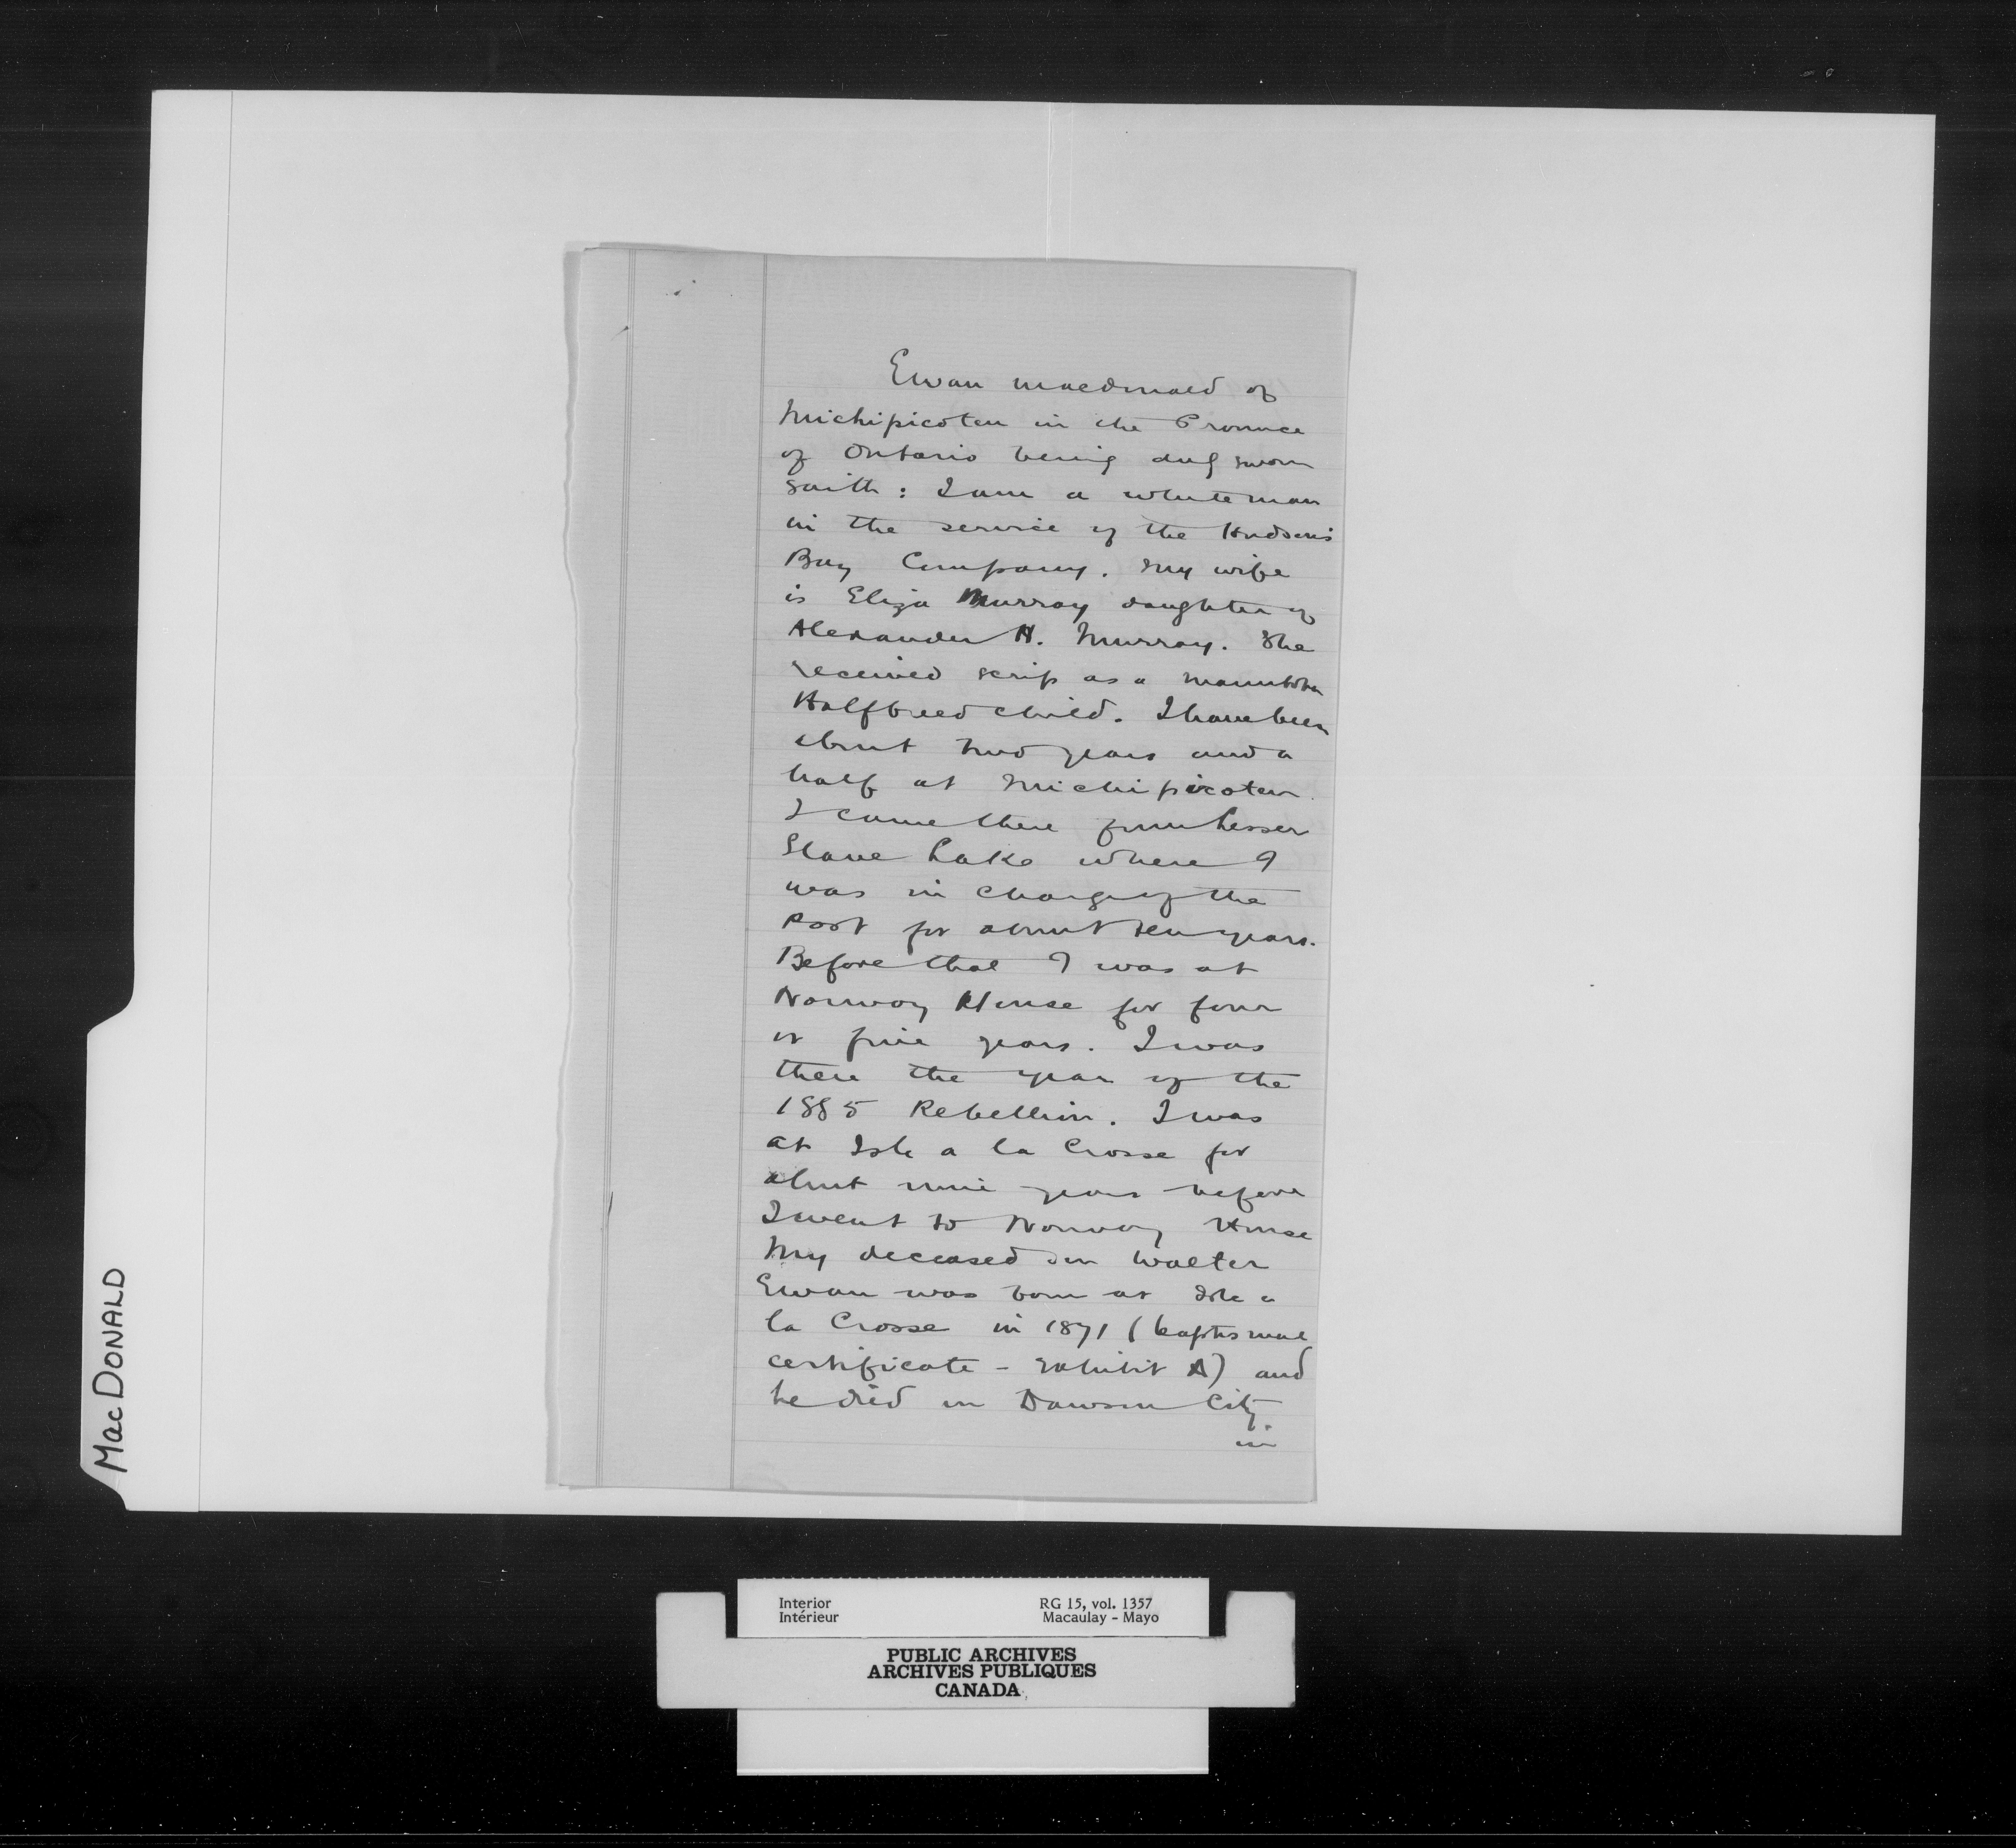 Ewan Macdonald of
Michipicoten in the Province
of Ontario being duly sworn
saith: I am a white man
in the service of the Hudson's
Bay Company. My wife
is Eliza Murray daughter of
Alexander H. Murray. She
received scrip as a Manitoba
Halfbreed child. I have been
about two years and a
half at Michipicoten
I came there from Lesser
Slave Lake where I
was in charge of the
Post for about ten years.
Before that I was at
Norway House for four
or five years. I was
there the year of the
1885 Rebellion. I was
at Isle a la Crosse for
about nine years before
I went to Norway House
My deceased son Walter
Ewan was born at Isle a
la Crosse in 1871 (baptismal
certificate - Exhibit A) and
he died in Dawson City
in
MacDONALD
Interior
Intérieur
RG 15, vol. 1357
Macaulay - Mayo
PUBLIC ARCHIVES
ARCHIVES PUBLIQUES
CANADA